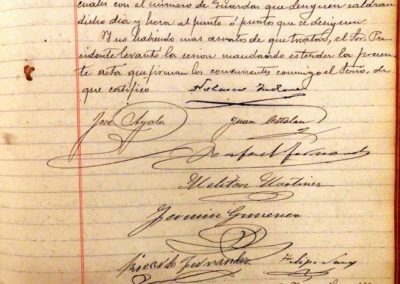 cuales con el número de Guardas que designen saldrán
dicho día y hora al punto ó puntos que se designen
Y no habiendo más asuntos de que tratar, el Sor. Pre
sidente levantó la sesion mandando estender la presen
te acta que firman los concurrentes conmigo el Serio, de
que certifico
José Ayala Juan Catalan
Rafael Fernand
Meliton Martinez
Fermin Gimenez
Ricardo Fernández Felipe Sanz